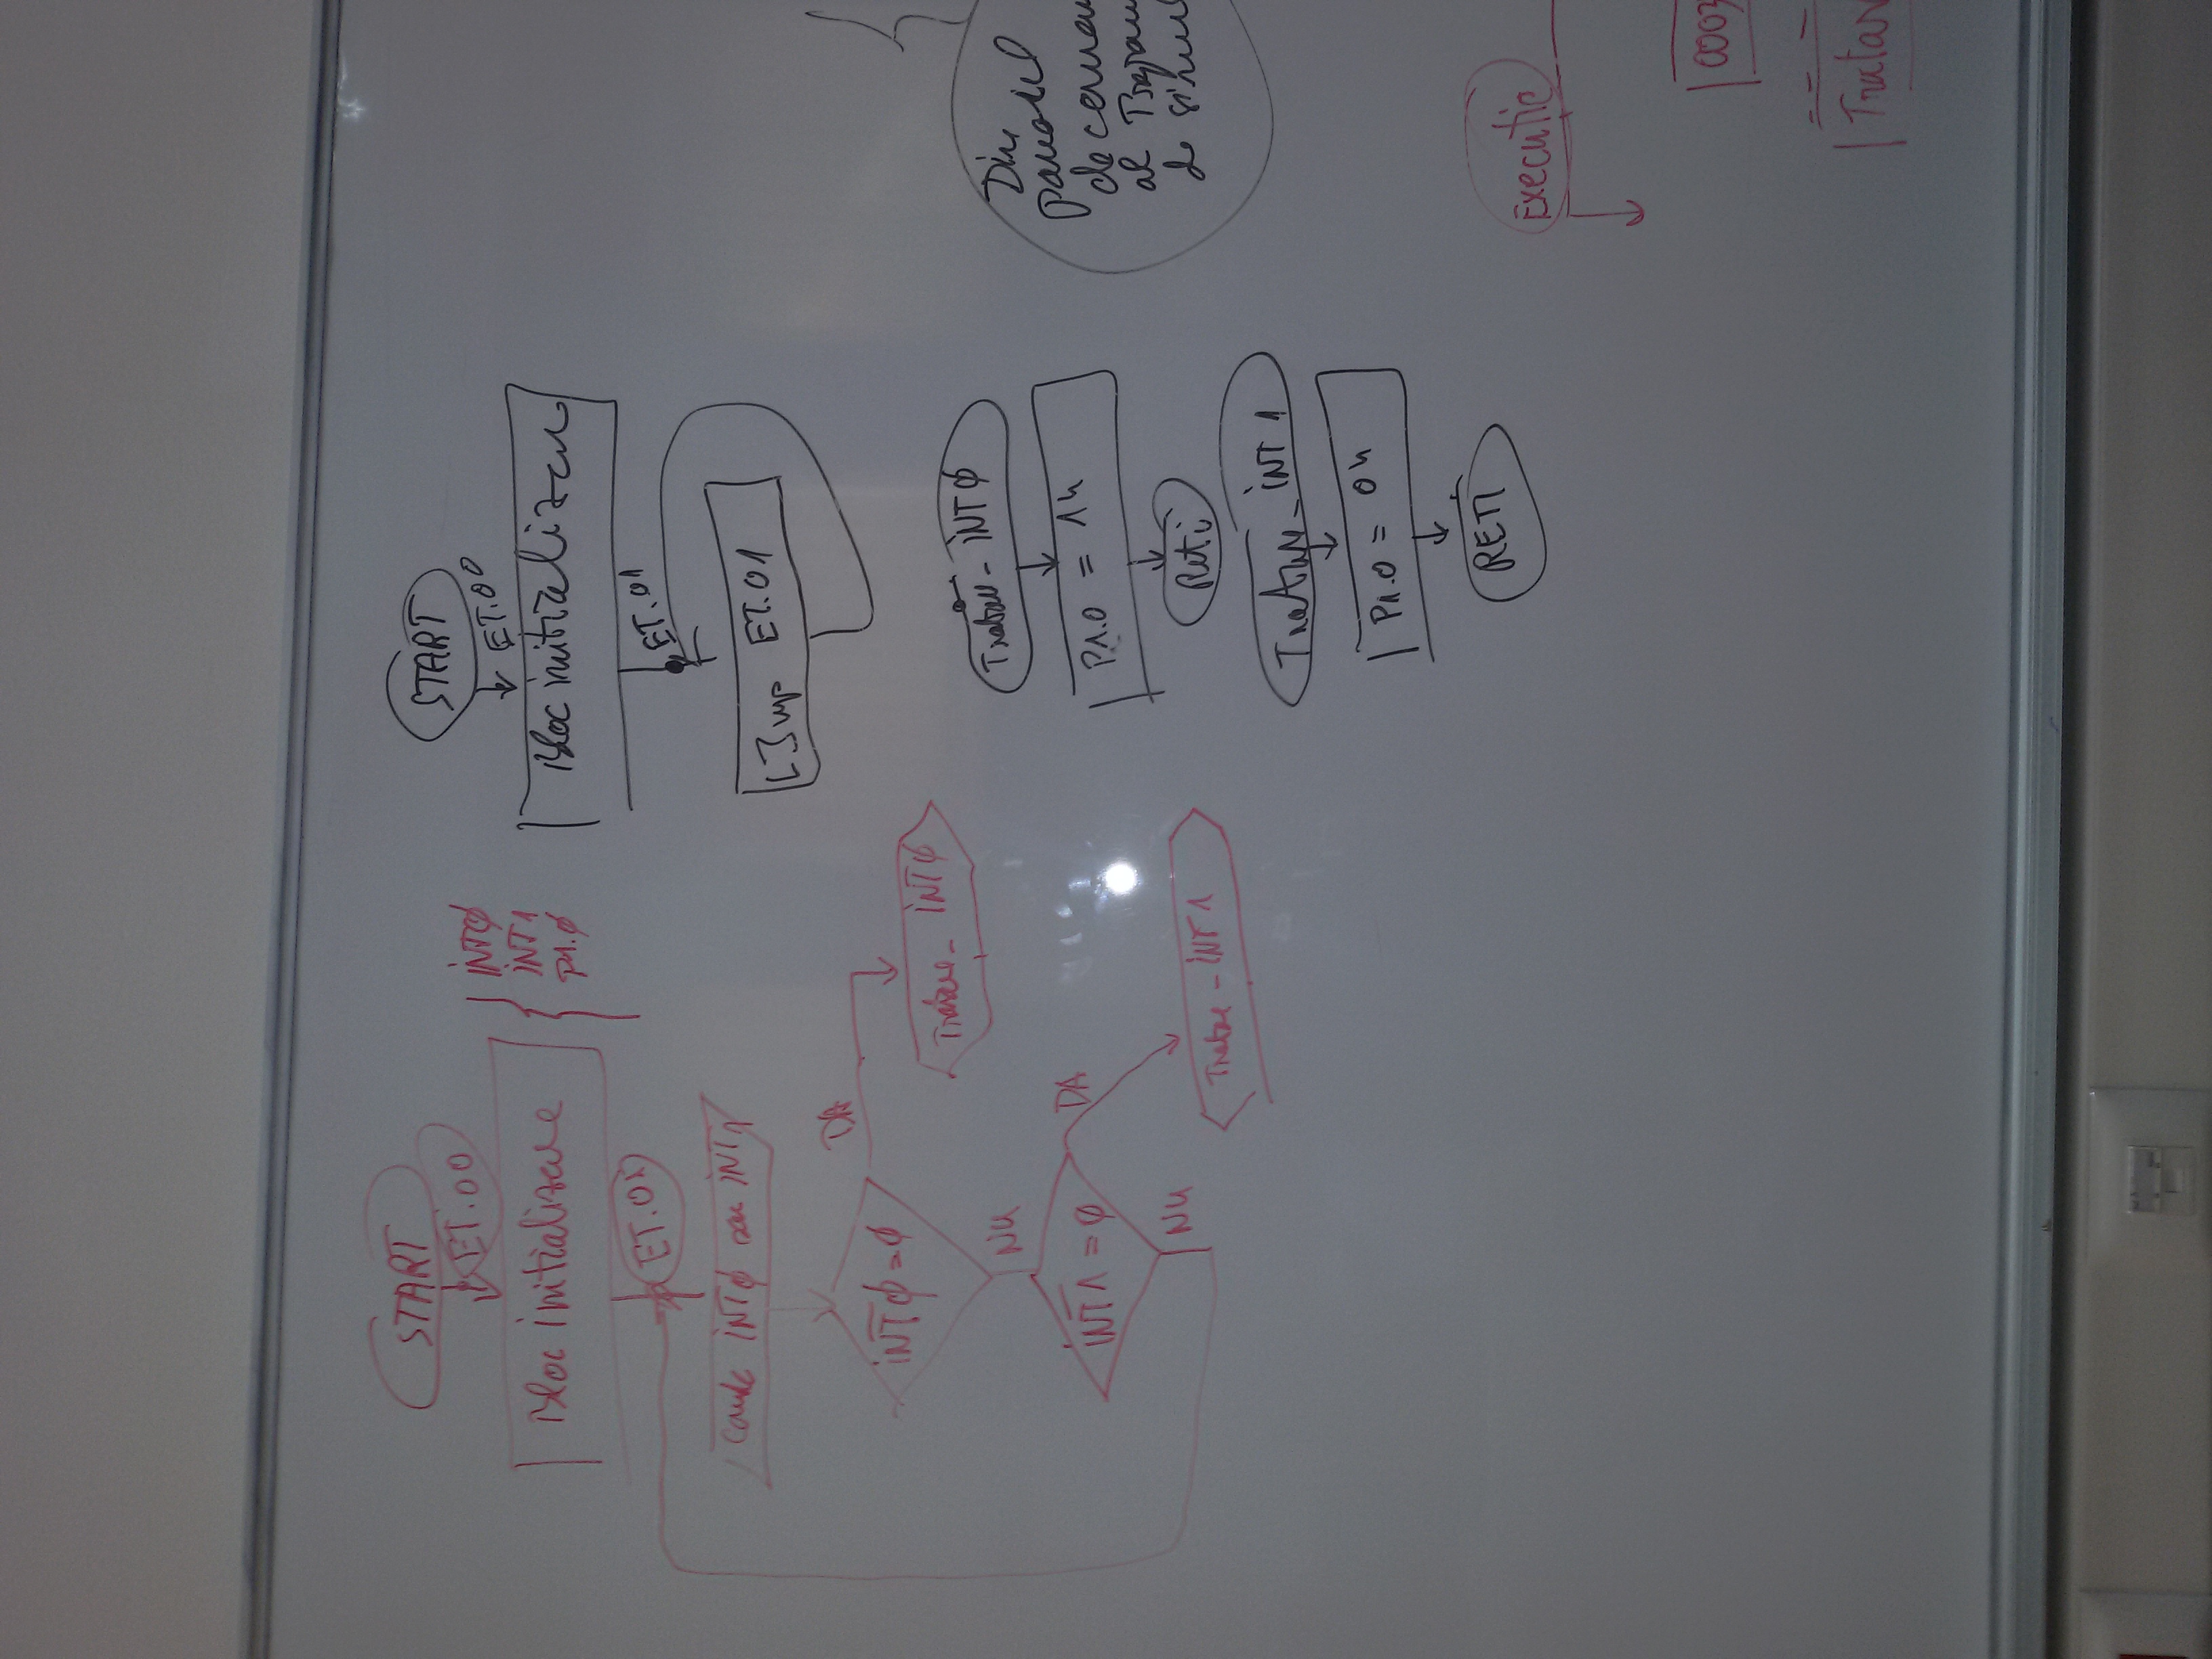 START
ET.00
Bloc initializare
INTØ
INT1
P1.Ø
ET.01
INTØ sau INT1
INTØ = Ø
DA
Tratare_ INTØ
NU
INT1 = Ø
DA
NU
Tratare_INT1
START
ET.00
Bloc initializare
ET.01
LJmp ET.01
Tratare_INTØ
P1.0 = 1h
Reti
Tratare_INT1
P1.0 = 0h
RETI
Din
panoul
de
al
de
Executie
0003
Tratar